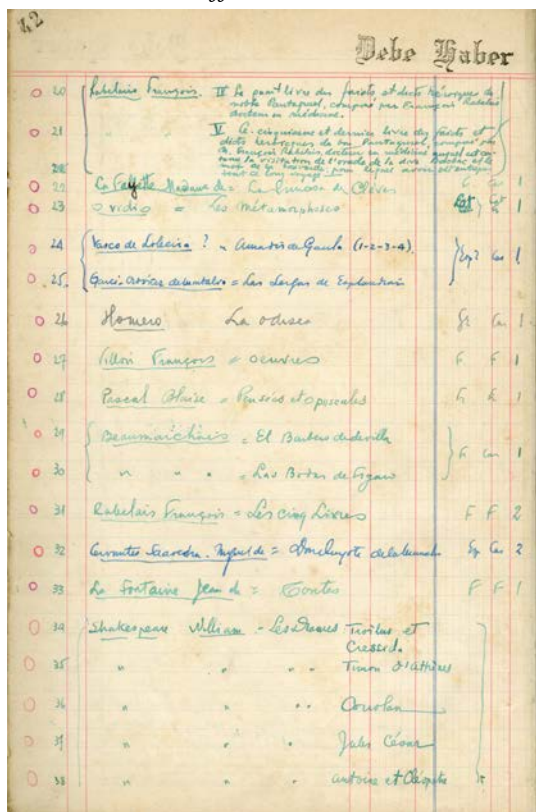 42
Debe Haber
20 Rabelais François. IV Le quart livre des faicts et dicts héroïques du
noble Pantagruel, composé par François Rabelais
docteur en médecine.
21 V Le cinquiesme et dernier livre des faicts et
dicts heroïcques du bon Pantagruel, composé par
M. François Rabelais, docteur en médecine auquel est
la visitation de l'oracle de la dive Bacbuc et le
mot de la pour lequel avoir est
ce long voyage
22 La Fayette Madame de = La de Clèves Cas 1
23 Ovidio = Les métamorphoses Lat 1
24 Vasco de Lobeira ? = Amadis de Gaula (1-2-3-4)
Esp? Cas 1
25. Garci = Las Sergas de Esplandian
26 Homero La odisea Gr Cas 1
27 Villon François = oeuvres F F 1
28 Pascal Blaise = Pensées et opuscules 1
29 Beaumarchais = El Barbero de sevilla
F Cas 1
30 " " " = Las Bodas de Figaro
31 Rabelais François = Les cinq Livres F F 2
32 Cervantes Saavedra. Miguel de = Don Cas 2
33 La Fontaine Jean de = Contes F F 1
34 Shakespeare William - Les Drames Troilus et
Cressid.
35 " " " " Timon d'Athènes
36 " " " " Coriolan
37 " " " " Jules César
38 " " " antoine et Cléopâtre